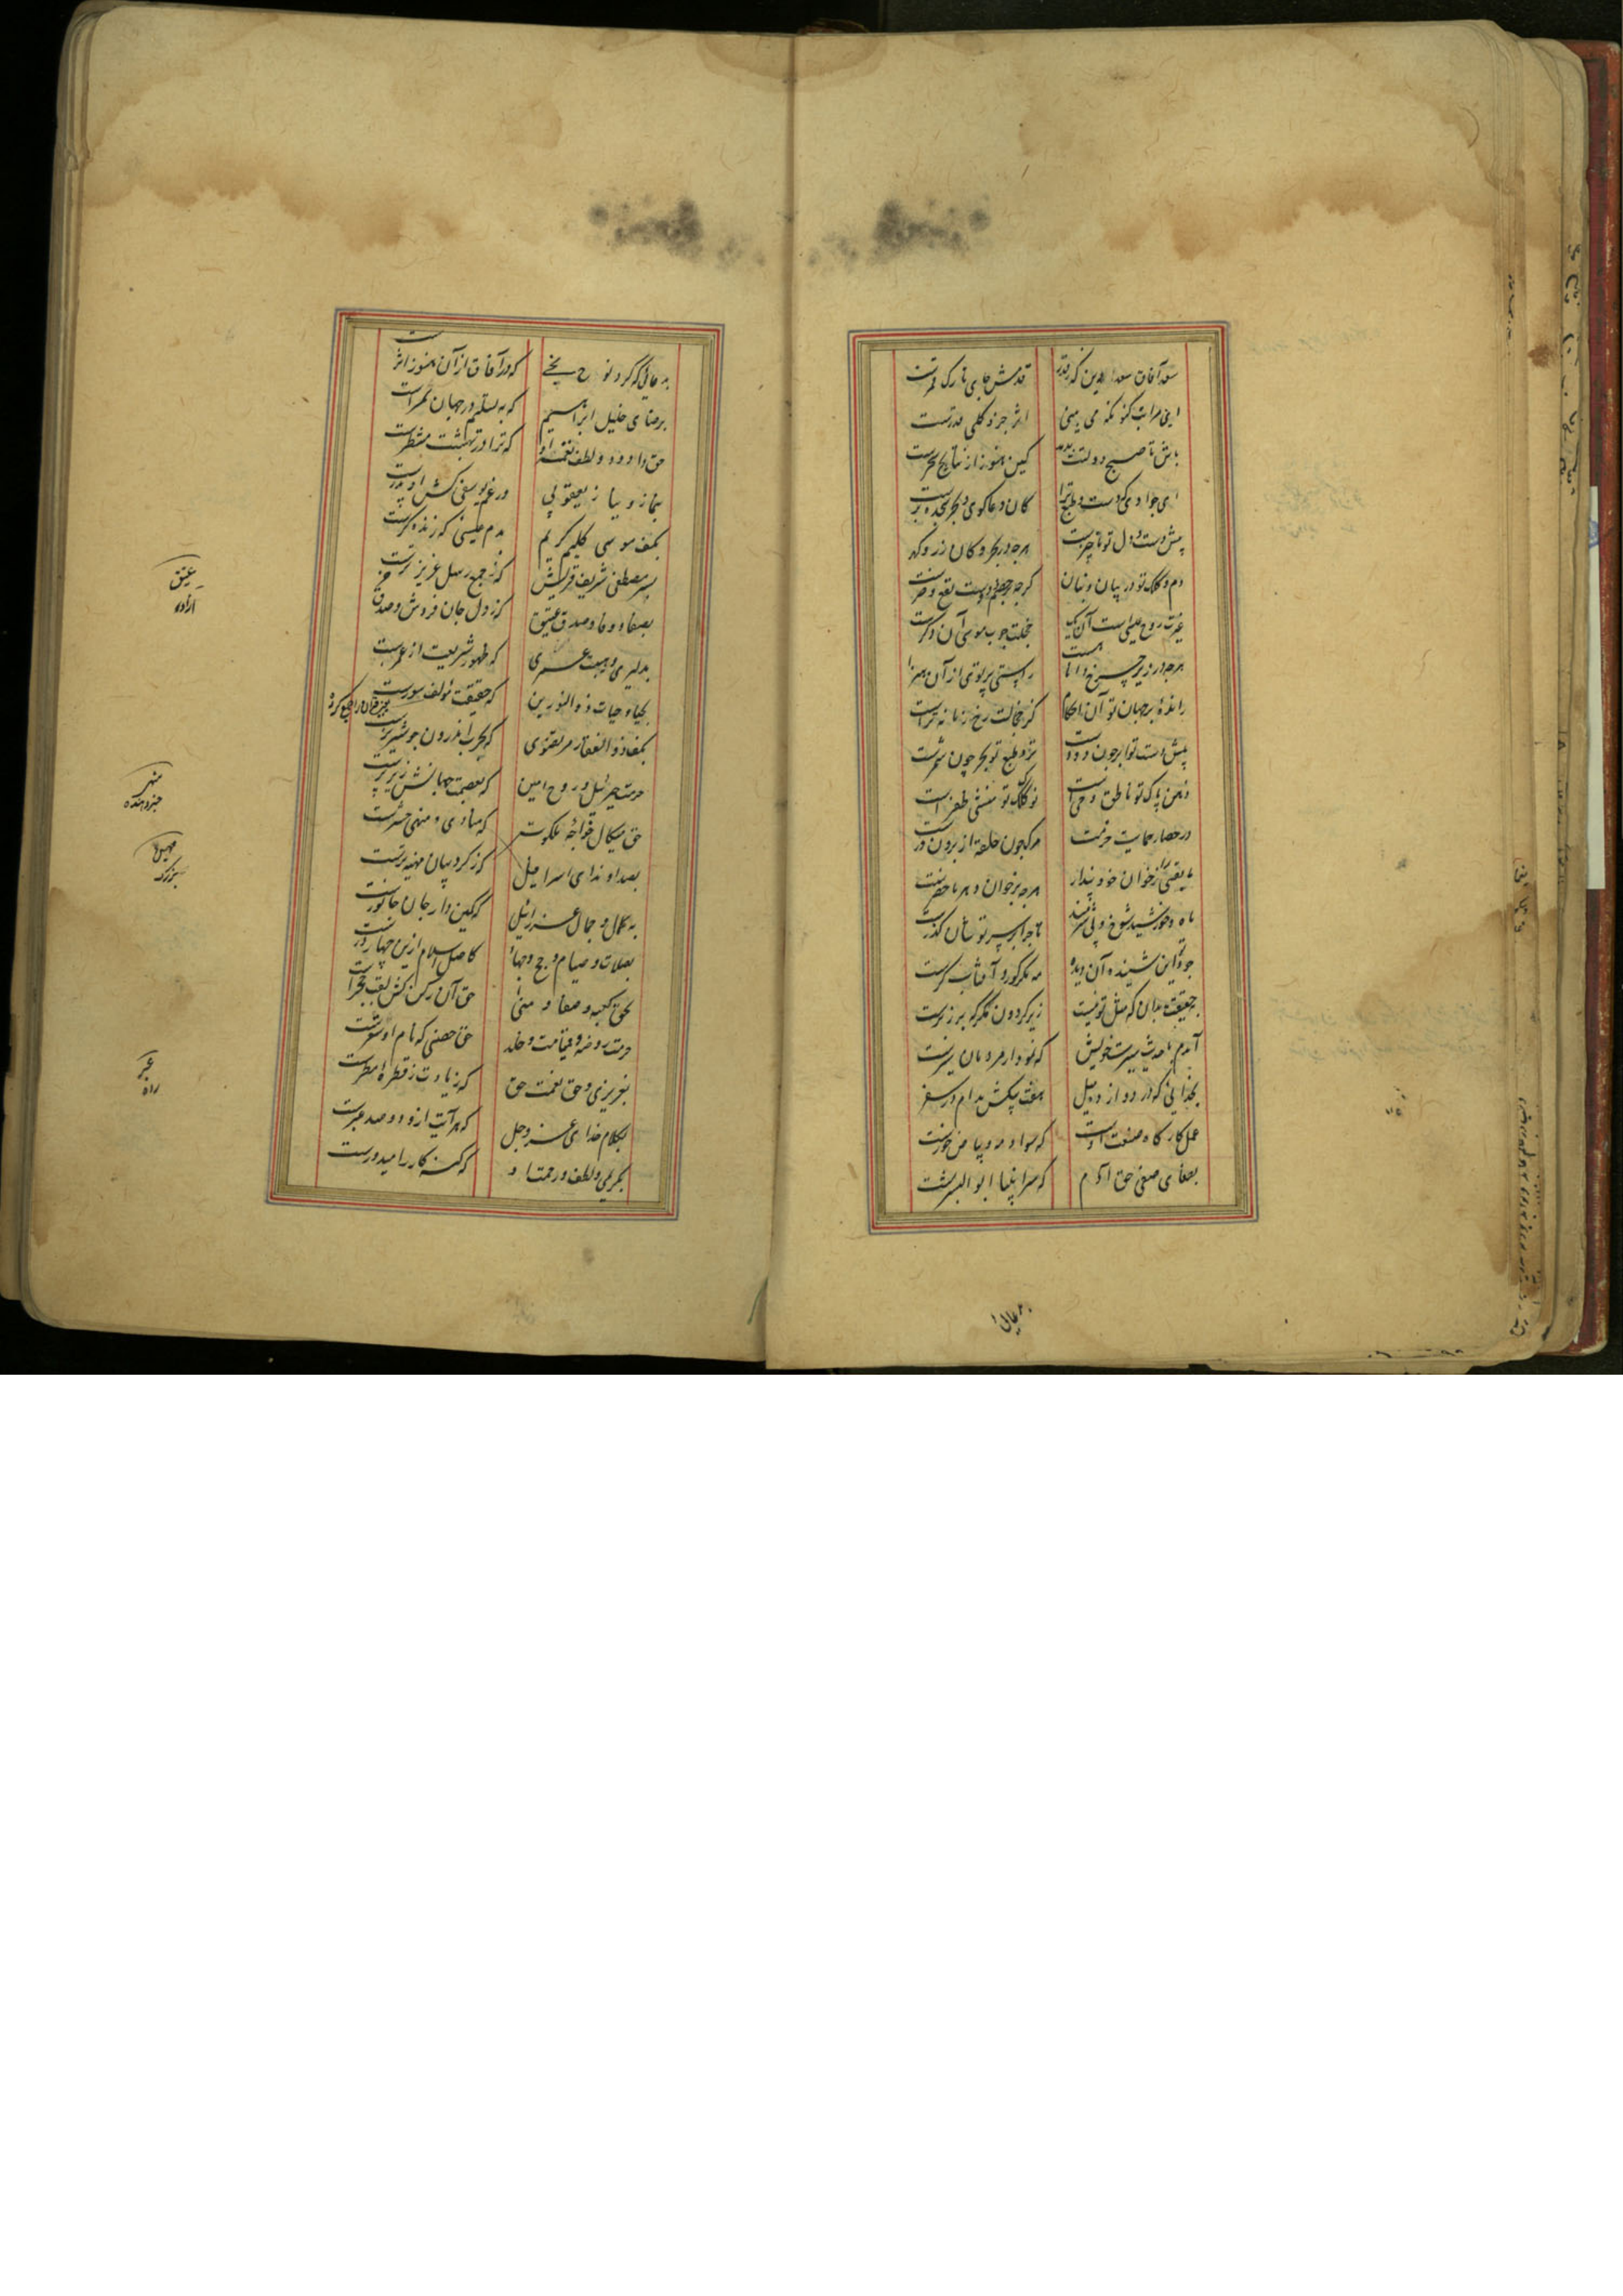 سعد آفاق سعد الدین که ز قدر
قدمش جای تارک قمرست
این مراتب کنونکه می بینی
اثر جزو کلی قدرست
باش تا صبح دولتت بدمد
کین هنوز از نتایج سحرست
ای جوادی که دست و طبع ترا
کان دعاگوی و بحر سجده برست
پیش دست و دل تو ناچیزست
هرچه در بحر و کان زر و گهر
دم و کلک تو در بیان و بنان
گرچه بر جسم دوست نفع و ضرست
غیرت روح عیسی است آن یک
خجلت چوب موسی آن دگرست
هرچه در زیر چرخ دانا هست
راستی پرتوی از آن هنر
رانده بر جهان تو آن احکام
کز خجالت رخ زمانه ترست
پیش دست تو ابر چون دودست
نزد طبع تو بحر چون شمرست
ذهن پاک تو ناطق وحی است
نوک کلک تو منشی ظفر است
در حصار حمایت حزمت
مرگ چون حلقه از برون درست
ما بقی را ز خوان خود پندار
هرچه بر خوان دهر ما حضرست
ماه و خورشید شوخ و بی شرمند
تا چرا بر سپهرشان گذرست
جود تو این شنیده آن دیده
مه مگر کور و آفتاب کرست
بحقیقت بدان که مثل تو نیست
زیر گردون مگر که بر زبرست
آمدم با حدیث سیرت خویش
که نمودار مردمان سیرست
بخدایی که در دوازده میل
هفت پیکش مدام در سفر
عمل کارگاه صنعت اوست
که سواد مه و بیاض خورست
بصفای صفی حق آدم
که سر انبیا ابو البشرست
به دعائی
به دعائی که کرد نوح نجی
که در آفاق از آن هنوز اثرست
برضای خلیل ابراهیم
که به تسلیم در جهان سمرست
حق داود و لطف نغمه او
که ترا در بهشت منتظرست
بنماز و نیاز یعقوبی
در غم یوسفی کش او پدرست
بکف موسی کلیم کریم
بدم عیسی که زنده گرست
بسر مصطفی شریف قریش
که ز جمع رسل عزیزترست
بصفا و وفا و صدق عتیق
که ز دل جان فروش و صدق خرست
بدلیری و هیبت عمری
که ظهور شریعت از عمرست
بحیا و حیات ذوالنورین
که حقیقت مؤلف سورست
بکف ذوالفقار مرتضوی
که بحرب اندرون چو شیر نرست
حرمت جبرئیل روح امین
که بعصمت جهانش زیر پرست
حق میکال خواجه ملکوت
که ز کروبیان مهینه ترست
بصدا و ندای اسرافیل
که منادی و منهی حشرست
به کمال و جمال عزرائیل
که کمین دار جان جانورست
بصلات و صیام و حج و جهاد
کاصل اسلام ازین چهار درست
بحق کعبه و صفا و منی
حق آن رکن کش لقب حجرست
حرمت روضه و قیامت و خلد
حق حصنی که نام او سقرست
بعزیزی و حق نعمت حق
که زیادت ز قطره مطرست
بکلام خدای عز و جل
که هر آیت ازو دو صد عبرست
بکریمی و لطف و رحمت او
که گنه کار را امیدورست
عتیق
آزاده
منهی
خبر دهنده
مهین
بزرگ
عبر
راه